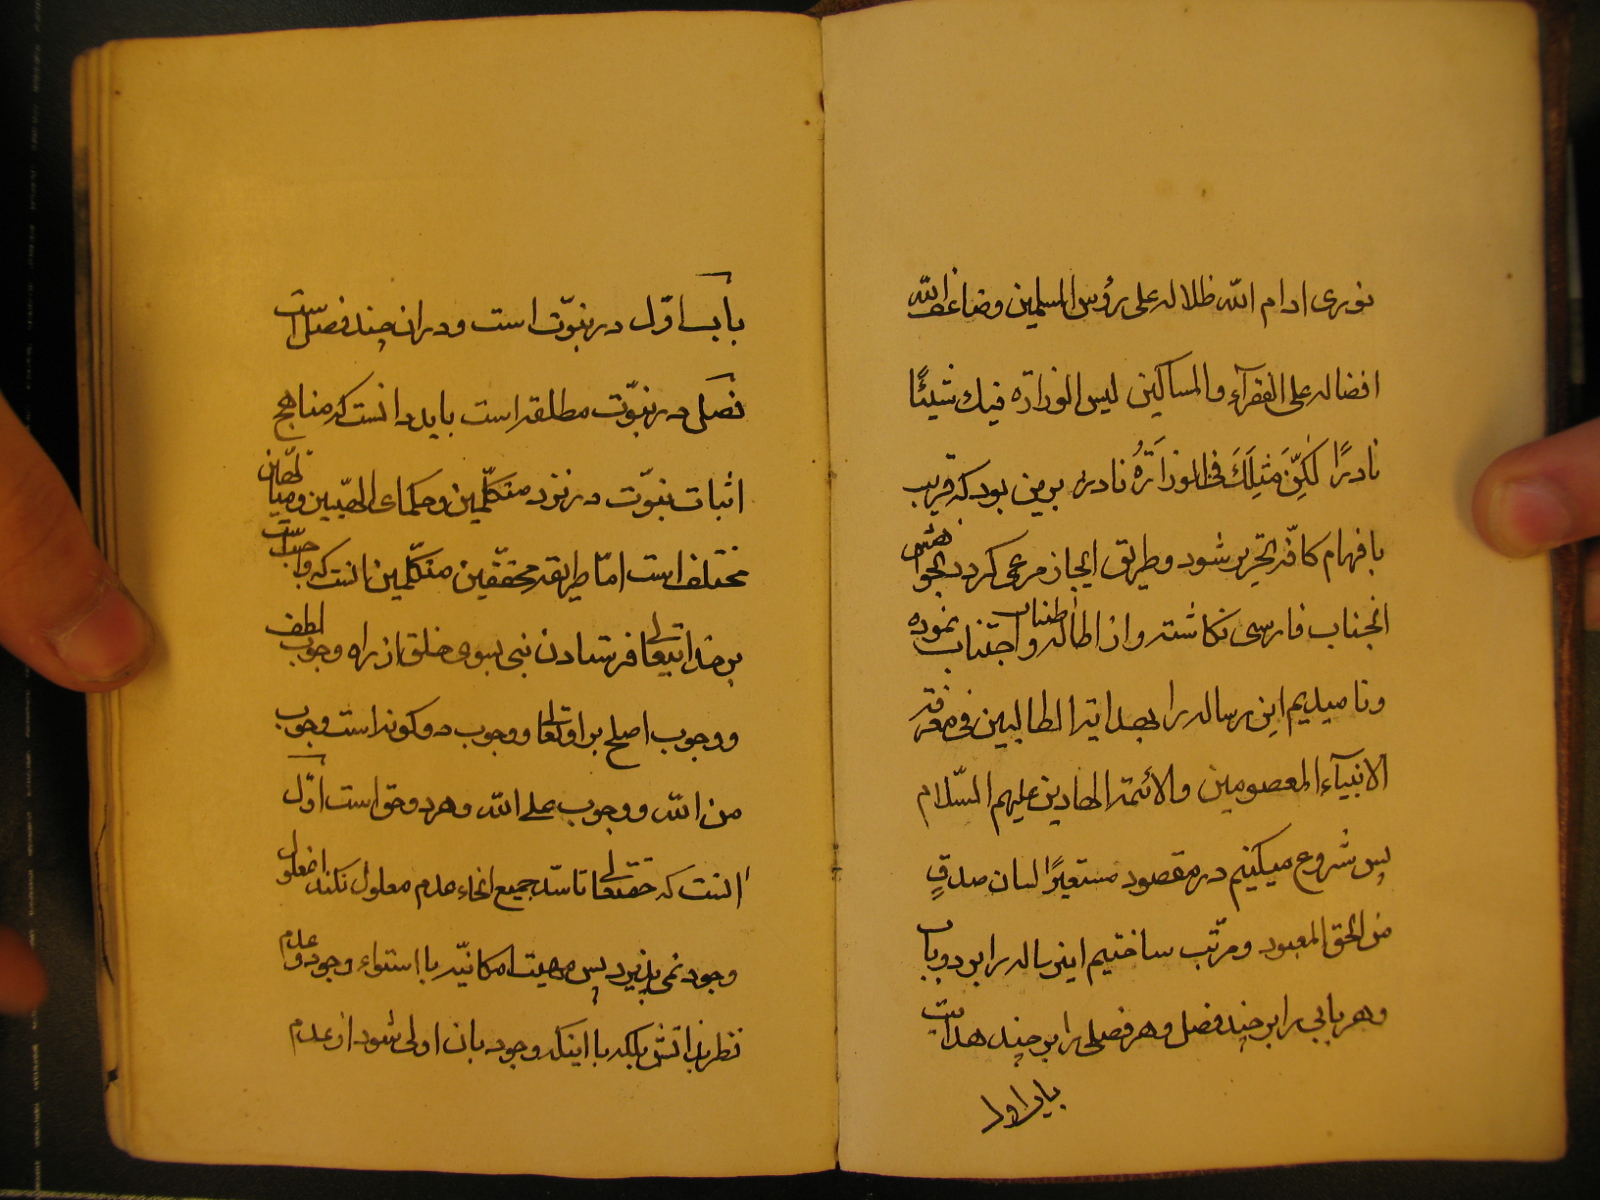 نوری ادام الله ظلاله علی رؤس المسلمین وضاعف الله
افضاله علی الفقرآء والمساکین لیس الوزارة فیك شیئًا
نادرًا لٰکِنَّ مَثِلَكَ فی الوزاَرَةُ نادر بر من بود که قریب
بافهام کافّه التحریر شود وطریق ایجاز مرعی کرد بخواهش
انجناب فارسی نکاشته واز اطاله واطناب اجتناب نموده
ونامیدیم این رساله را بهدایة الطالبین فی معرفة
الانبیآء المعصومین والائمة الهادین علیهم السّلام
پس شروع میکنیم در مقصود مستعیرًا لسان صدقٍ
من الحق المعبود ومرتّب ساختیم اینرساله را بر دو باب
وهر بابی را بر چند فصل وهر فصلی را بر چند هدایت
باب اوّل
باب اوّل در نبوّت است ودران چند فصل است
فصل در نبوّت مطلقه است باید دانست که مناهج
اثبات نبوّت در نزد متکلّمین وحکمای الهیّین ومتالّهین
مختلف است امّا طریقه محققّین متکلّمین انست که واجبست
بر خدایتعالی فرستادن نبی بسوی خلق از راه وجوب لطف
ووجوب اصلح بر او تعالی ووجوب دو کونه است وجوب
من الله ووجوب علی الله وهر دو حق است اوّل
انست که حقتعالی تا سدّ جمیع انحاء عدم معلول نکند معلول
وجود نمی پذیرد پس مهیت امکانیّه با استواء وجود وعدم
نظر بذاتش بلکه با اینکه وجود بان اولی شود از عدم